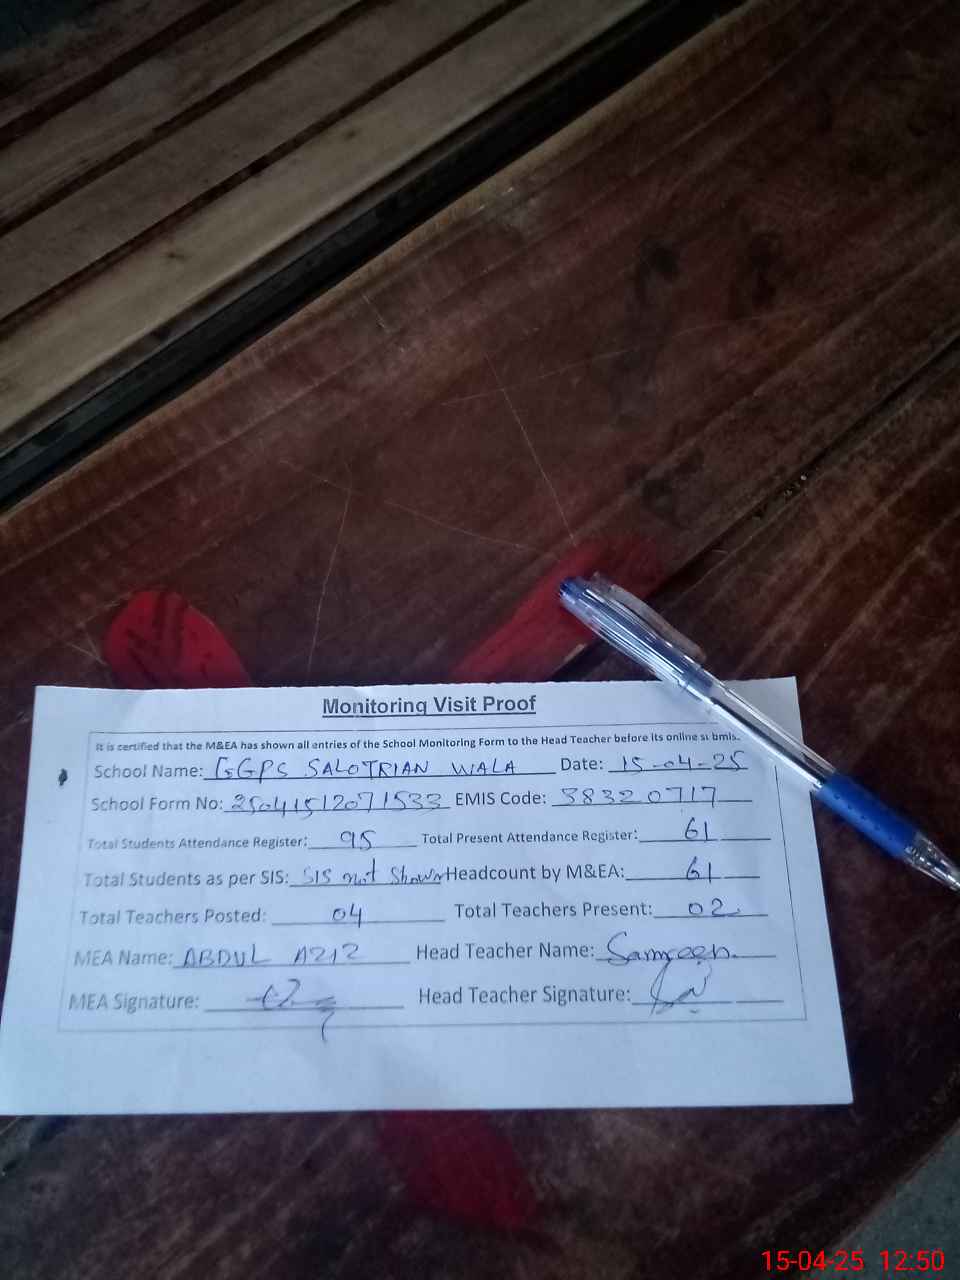 Monitoring Visit Proof
It is certified that the M&EA has shown all entries of the School Monitoring Form to the Head Teacher before its online submis.
School Name: GGPS SALOTRIAN WALA Date: 15-04-25
School Form No: 2504151207 1533 EMIS Code: 38320717
Total Students Attendance Register: 95 Total Present Attendance Register: 61
Total Students as per SIS: SIS not Shown Headcount by M&EA: 61
Total Teachers Posted: 04 Total Teachers Present: 02
MEA Name: ABDUL AZIZ Head Teacher Name: Samreen.
MEA Signature: Head Teacher Signature:
15-04-25 12:50